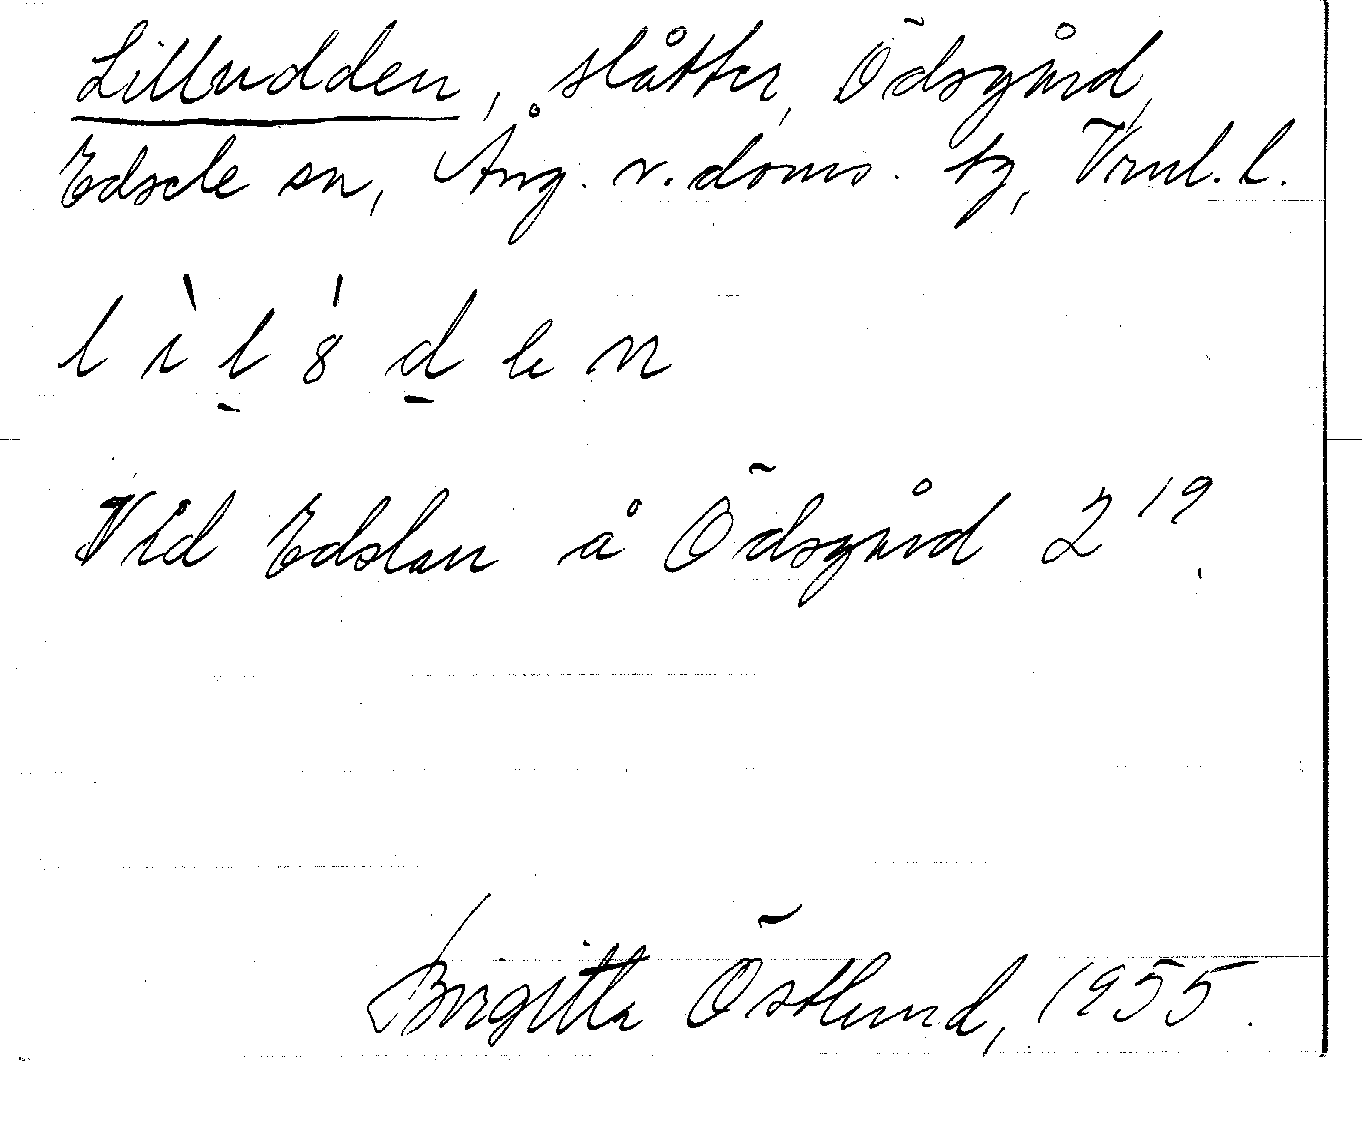 Lilludden, slåtter, Ödsgård,
Edsele sn, Ång. v. doms. tg, Vrnl. l.
l ì l̠ 8́ d̠ e n
Vid Edslan å Ödsgård 2¹⁹.
Birgitta Östlund, 1955.